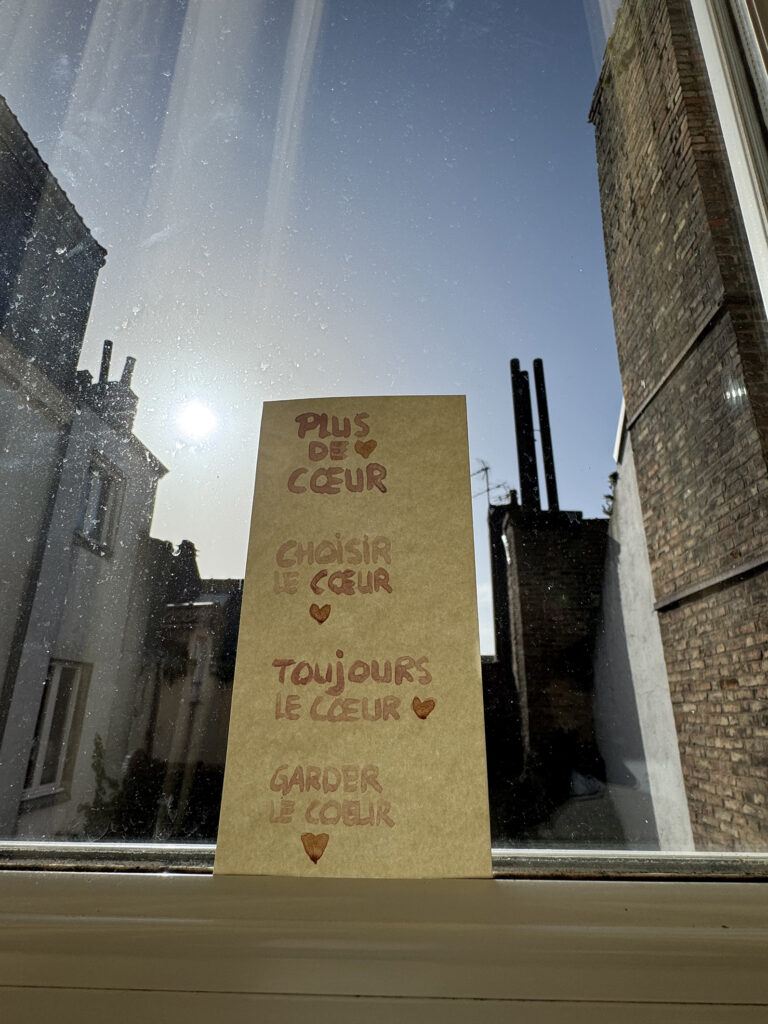 PLUS
DE
CŒUR
CHOiSiR
LE CŒUR
TOUjOURS
LE CŒUR
GARDER
LE COEUR